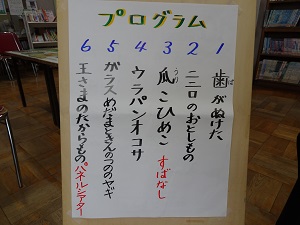 プログラム
1 歯がぬけた
2 二ニロのおとしもの
3 瓜こひめこ すばなし
4 ウラパンオコサ
5 ガラスめだまときんのつののヤギ
6 王さまのたからもの パネルシアター